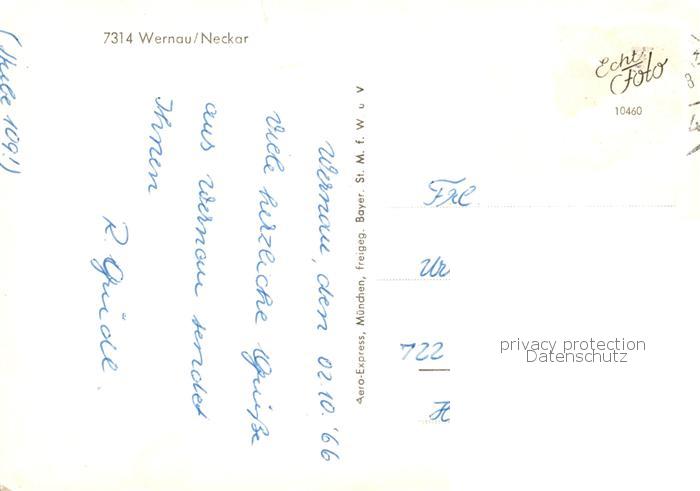 7314 Wernau/Neckar
Wernau, den 02.10.'66
Viele herzliche Grüße
aus Wernau sendet
Ihnen
R. Güdl.
Aero-Express, München, freigeg. Bayer. St. M. f. W u V
Echt Foto
10460
Frl.
Ur
722
H
privacy protection
Datenschutz